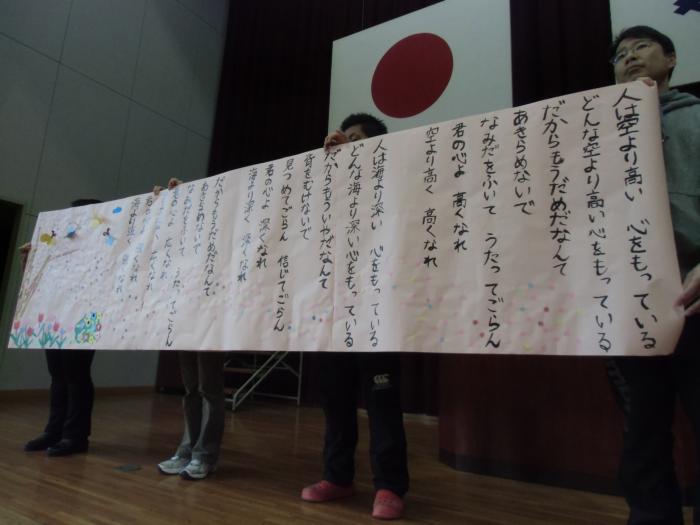 人は空より高い 心をもっている
どんな空より高い心をもっている
だからもうだめだなんて
あきらめないで
なみだをふいて うたってごらん
君の心よ 高くなれ
空より高く 高くなれ
人は海より深い 心をもっている
どんな海より深い心をもっている
だからもういやだなんて
背をむけないで
見つめてごらん 信じてごらん
君の心よ 深くなれ
海より深く 深くなれ
だからもうだめだなんて
あきらめないで
なみだをふいて うたってごらん
君の心よ 広くなれ